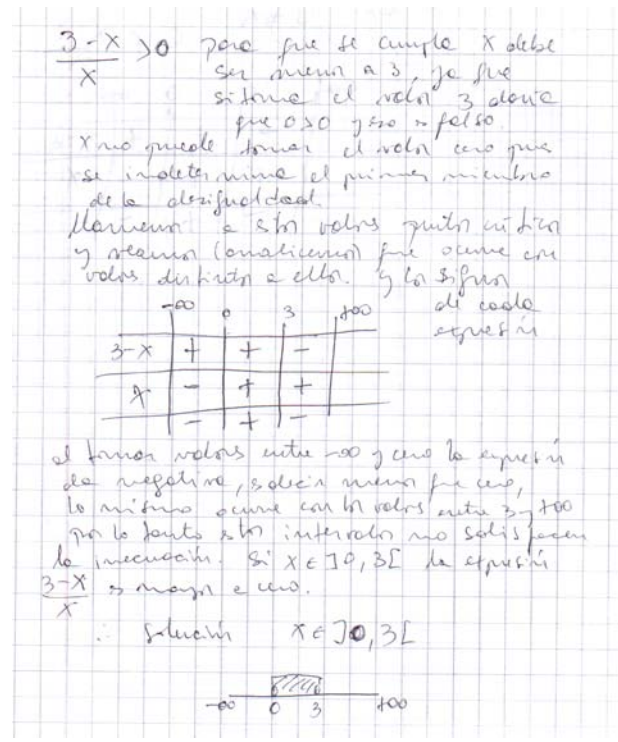 3-x/x >0 para que se cumpla x debe
ser menor a 3, ya que
si tomo el valor 3 daría
que 0>0 y eso es falso.
x no puede tomar el valor cero pues
se indetermina el primer miembro
de la desigualdad.
Llamemos a estos valores puntos críticos
y veamos (analicemos) que ocurre con
valores distintos a ellos. y los signos
de cada
expresión
-∞ 0 3 +∞
3-x + + -
x - + +
- + -
al tomar valores entre -∞ y cero la expresión
da negativa, es decir menor que cero,
lo mismo ocurre con los valores entre 3 y +∞
por lo tanto estos intervalos no satisfacen
la inecuación. Si x ∈ ]0, 3[ la expresión
3-x/x es mayor a cero.
∴ Solución x ∈ ]0, 3[
-∞ 0 3 +∞